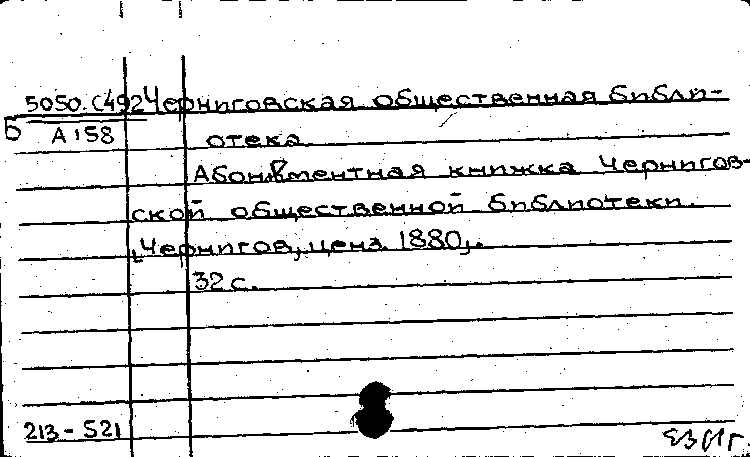 5050.С492 Черниговская общественная библи-
Б А 158 отека
Абонементная книжка Чернигов-
ской общественной библиотеки.
Чернигов, ценз. 1880,.
32 с.
213-521